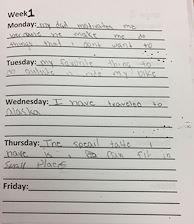 Week1
Monday: my dad motivates me
because he make me do
things that I dont want to
Tuesday: my favorite thing to
do outside is ride my bike
Wednesday: I have traveled to
Alaska
Thursday: The speail talte I
have is I can fit in
Small Places
Friday: